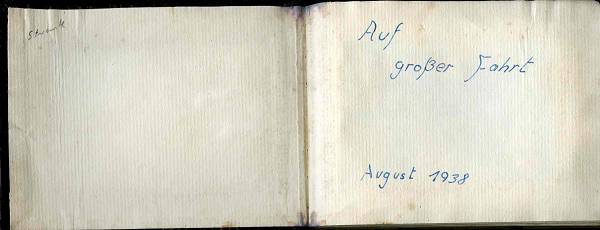 Auf
großer Fahrt
August 1938